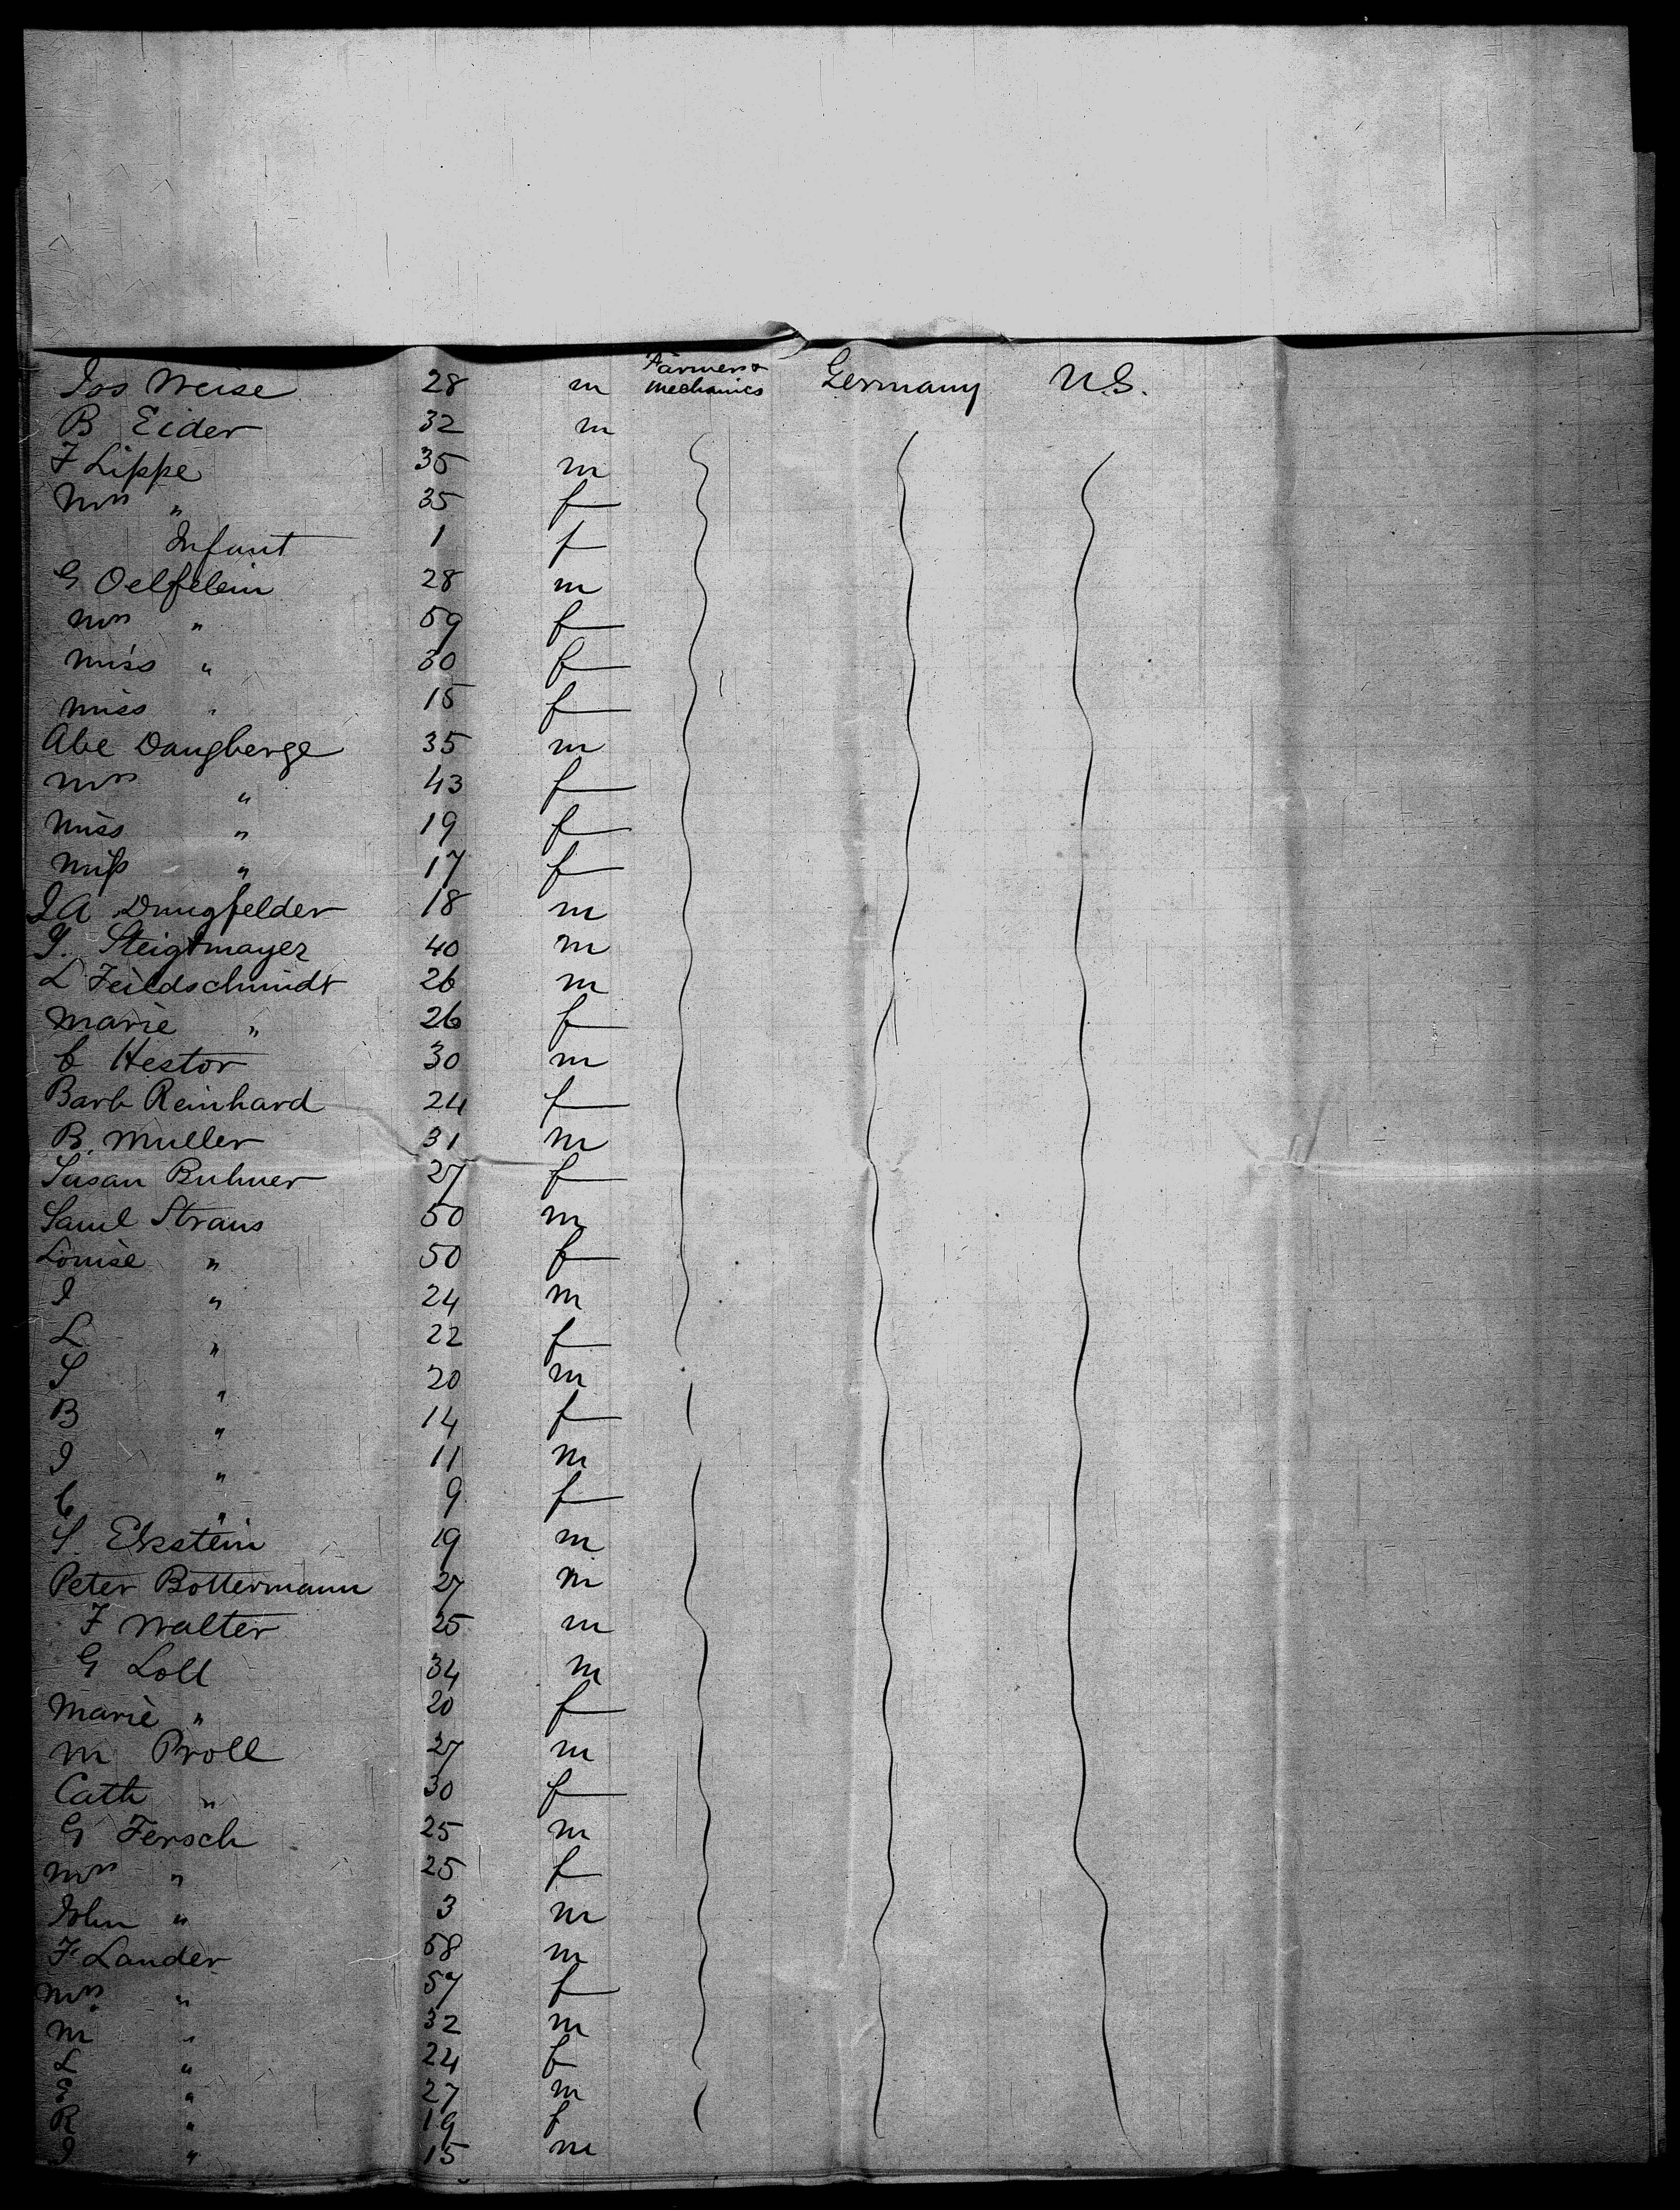 Jos Weise 28 m Farmers & Mechanics Germany U.S.
B Eider 32 m
F Lippe 35 m
Mrs " 35 f
Infant 1 f
G Oelfelein 28 m
Mrs " 59 f
Miss " 30 f
Miss " 15 f
Abe Daugberge 35 m
Mrs " 43 f
Miss " 19 f
Miss " 17 f
J A Drungfelder 18 m
J. Steigtmayer 40 m
L Feildschmidt 26 m
Marie " 26 f
C Hestor 30 m
Barb Reinhard 24 f
B. Muller 31 m
Susan Buhner 27 f
Saml Straus 50 m
Louise " 50 f
I " 24 m
L " 22 f
S " 20 m
B " 14 f
I " 11 m
C " 9 f
S. Ekstein 19 m
Peter Bottermann 27 m
F Walter 25 m
G Loll 34 m
Marie " 20 f
M Proll 27 m
Cath " 30 f
G Fersch 25 m
Mrs " 25 f
John " 3 m
F Lander 58 m
Mrs " 57 f
M " 32 m
L " 24 f
" 27 m
R " 19 f
I " 15 m